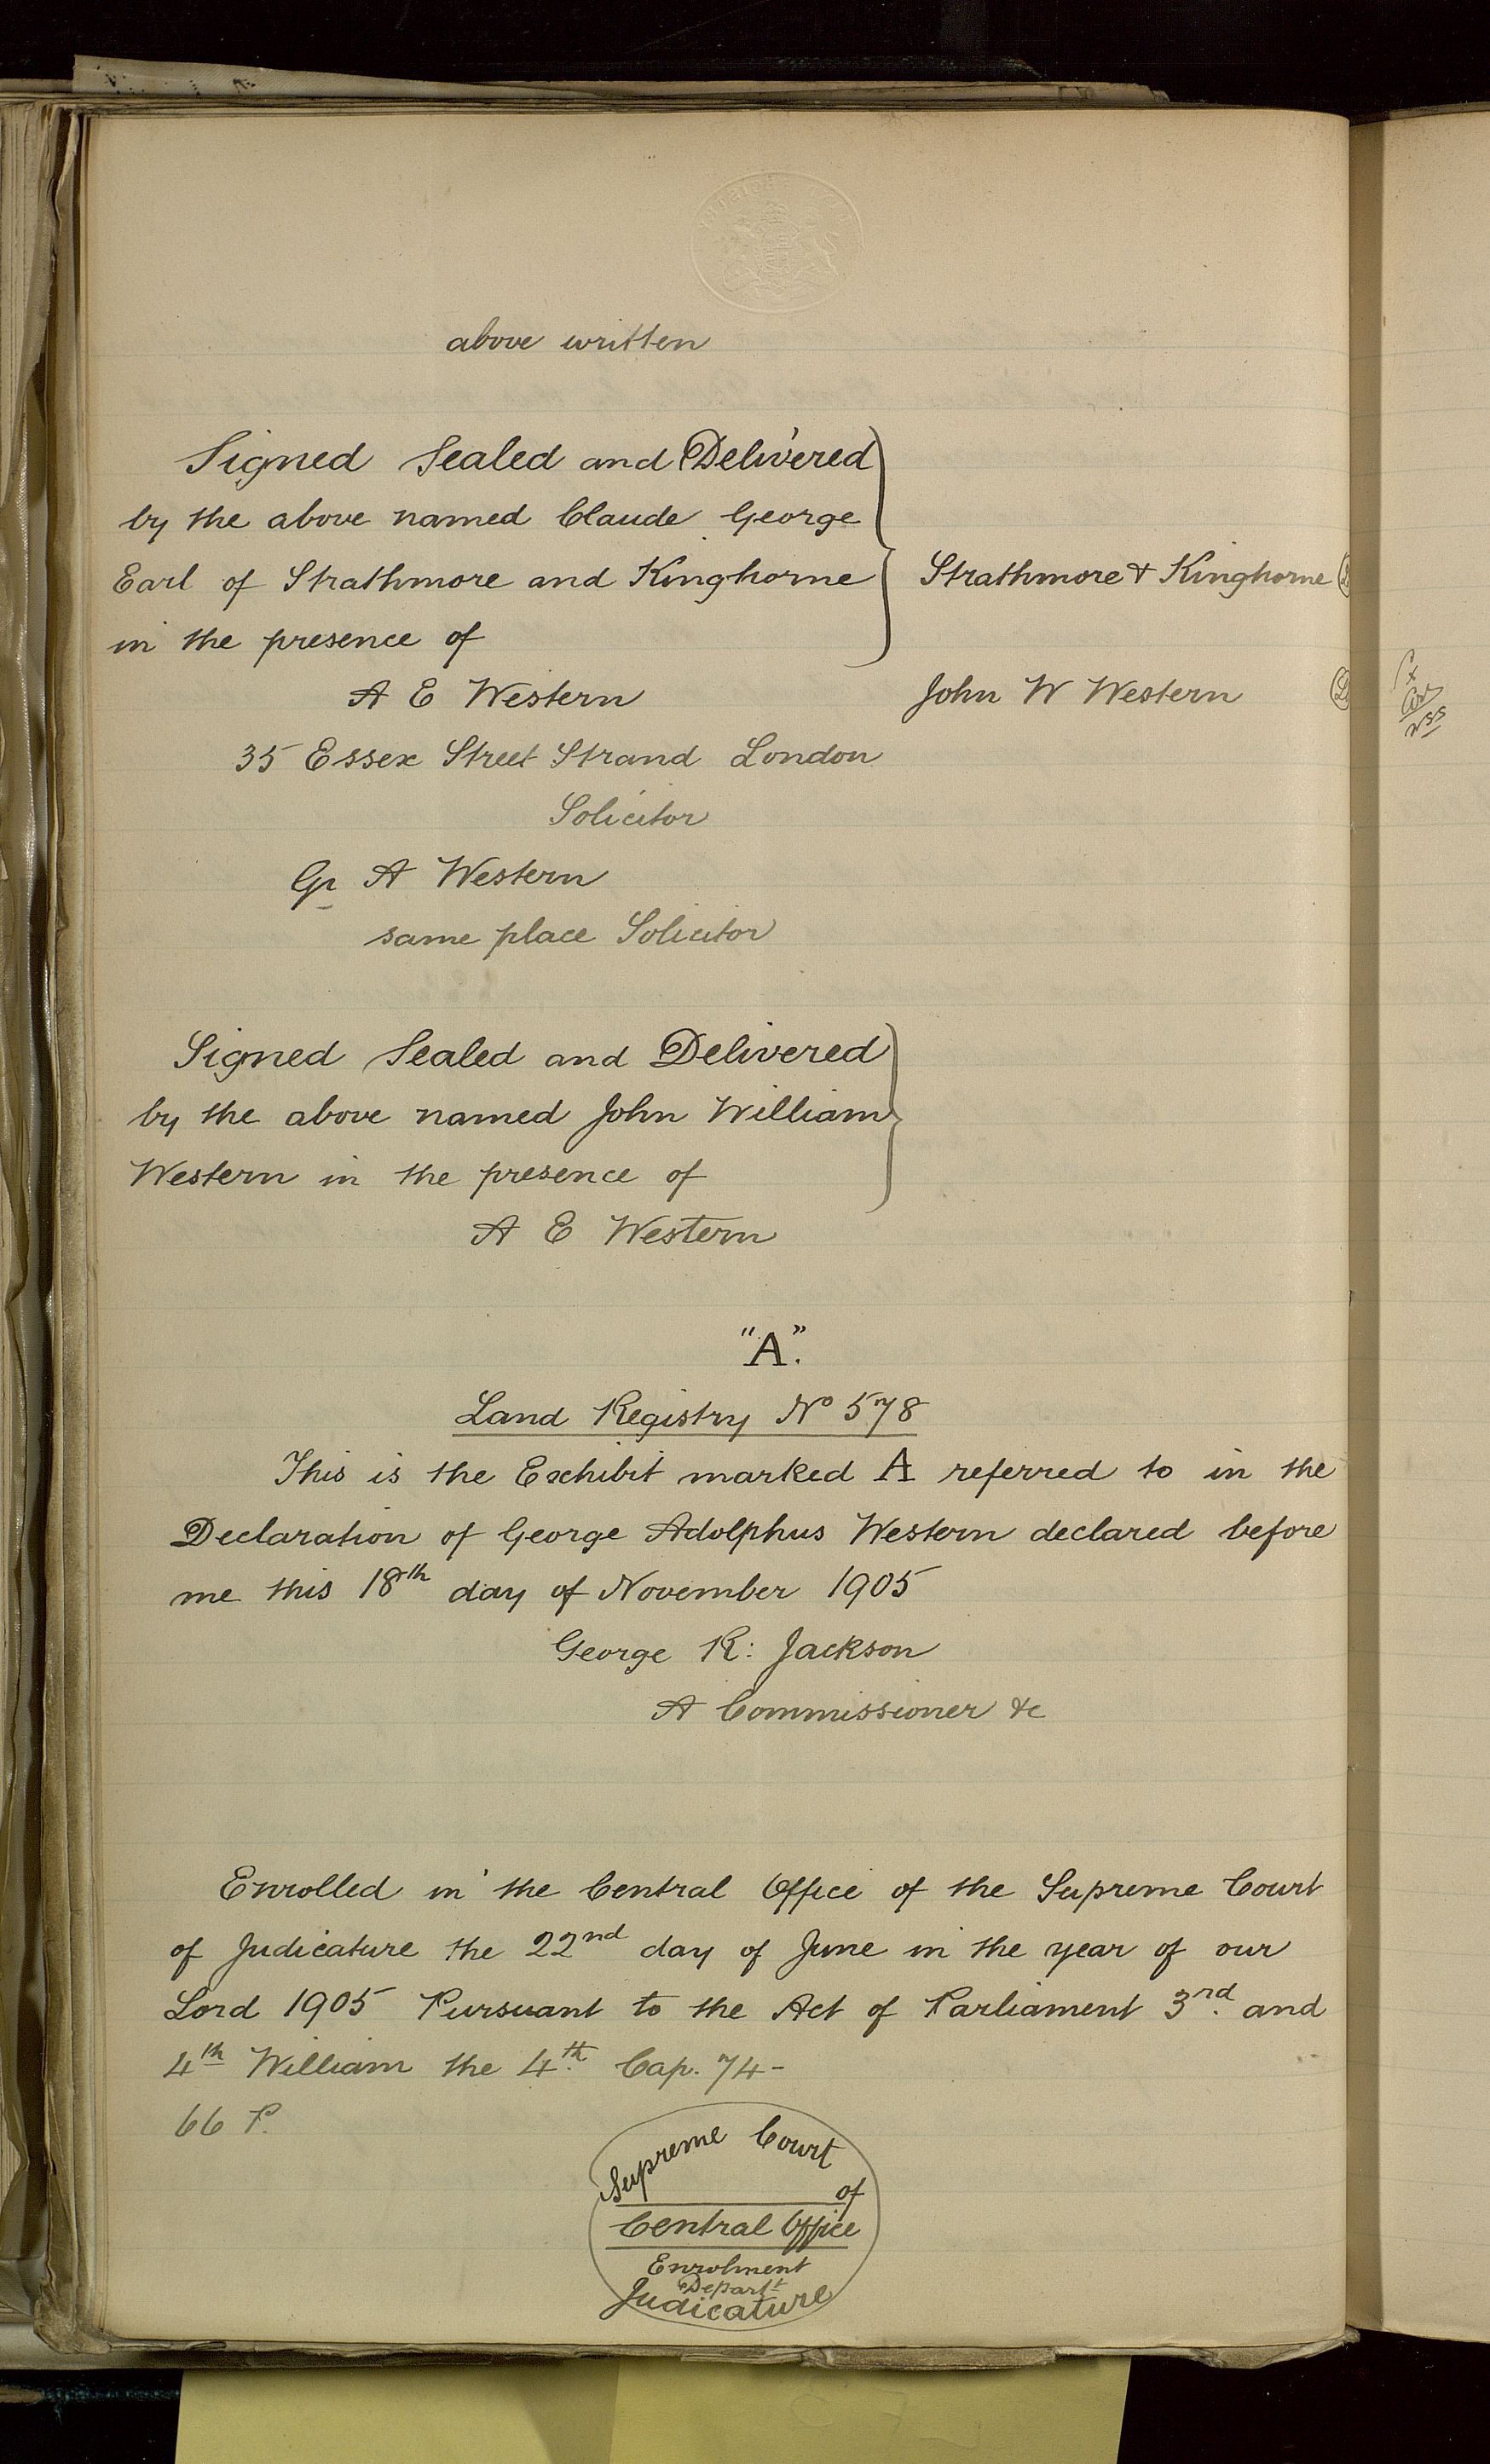 above written
Signed Sealed and Delivered
by the above named Claude George
Earl of Strathmore and Kinghorne
in the presence of
Strathmore & Kinghorne
A E Western
John W Western
35 Essex Street Strand London
Solicitor
G A Western
same place Solicitor
Signed Sealed and Delivered
by the above named John William
Western in the presence of
A E Western
"A".
Land Registry No 578
This is the Exhibit marked A referred to in the
Declaration of George Adolphus Western declared before
me this 18th day of November 1905
George R: Jackson
A Commissioner &c
Enrolled in the Central Office of the Supreme Court
of Judicature the 22nd day of June in the year of our
Lord 1905 Pursuant to the Act of Parliament 3rd. and
4th William the 4th. Cap. 74-
66 P.
Supreme Court
of
Central Office
Enrolment
Departt
Judicature